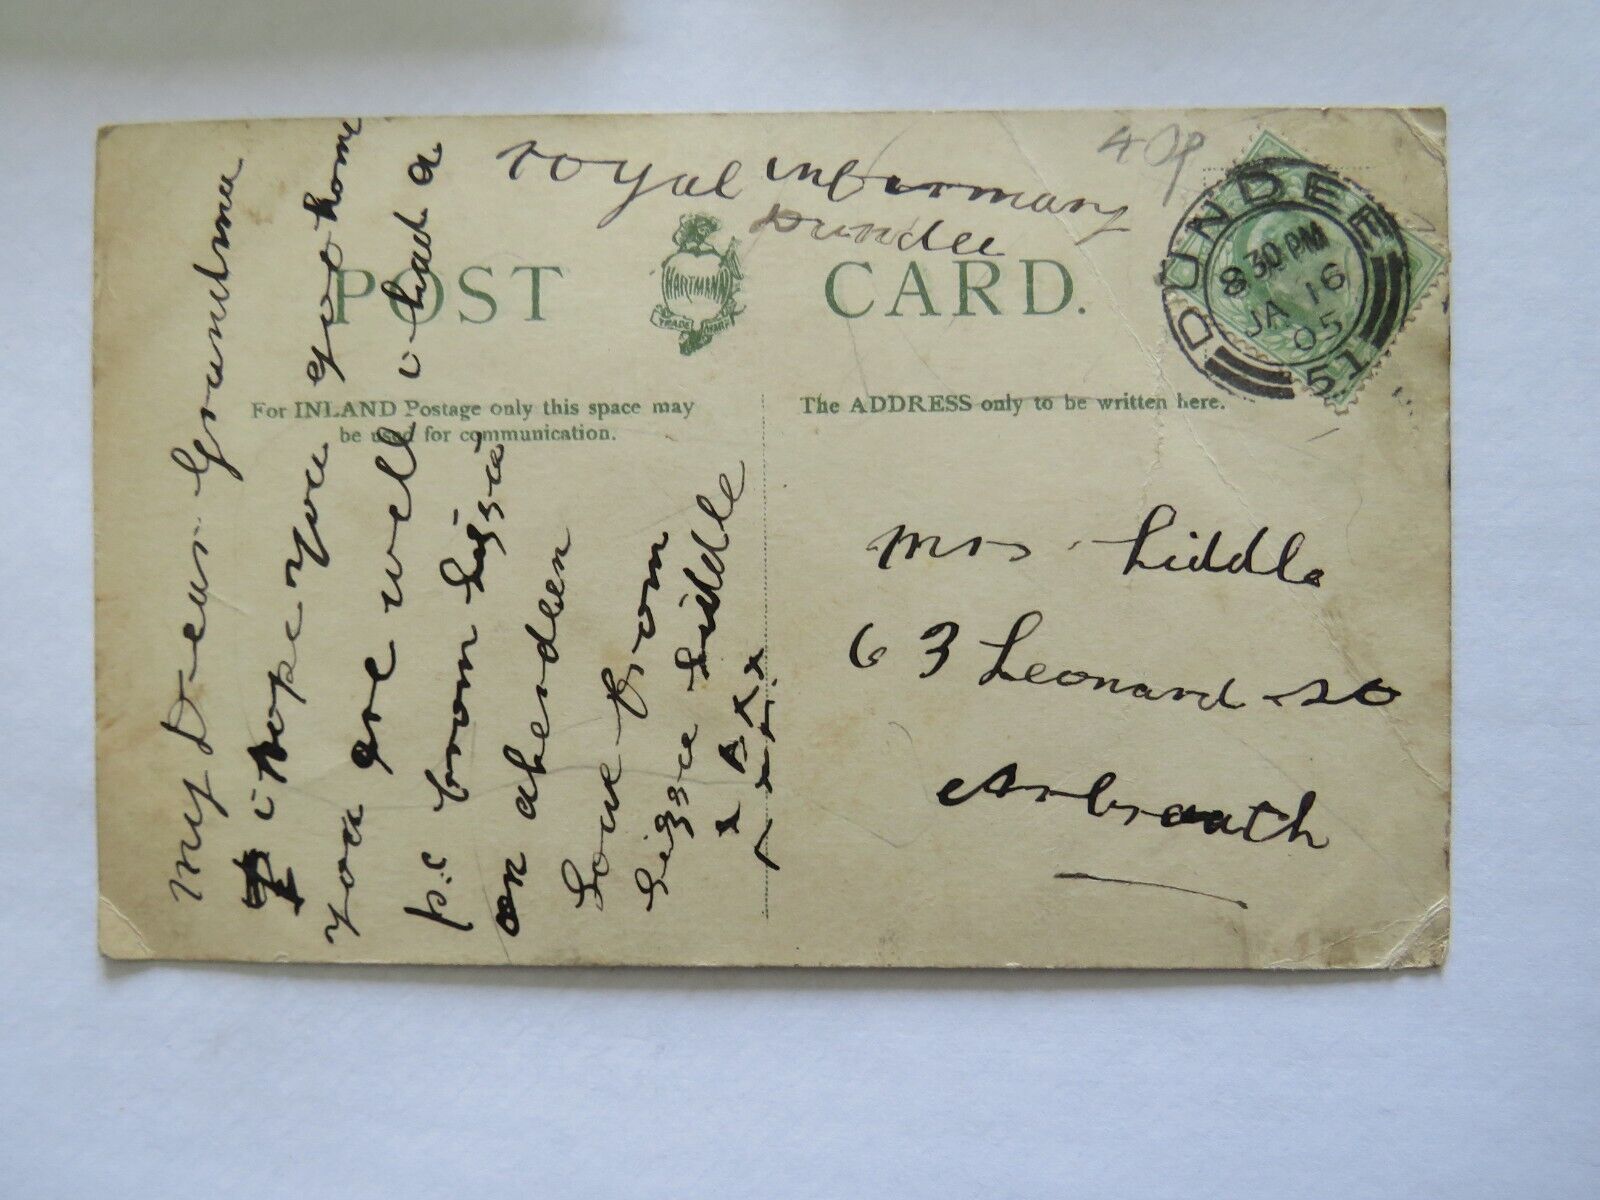 royal infirmary
Dundee
40p
POST CARD.
HARTMANN
TRADE MARK
DUNDEE
8 30 PM
JA 16
05
51
For INLAND Postage only this space may
be used for communication.
The ADDRESS only to be written here.
My Dear Grandma
i hope you
you are well i had a
p.c from Lizzie
on aberdeen
Love from
Lizzie Liddle
x x x x
x x x x
Mrs Liddle
63 Leonard st
Arbroath